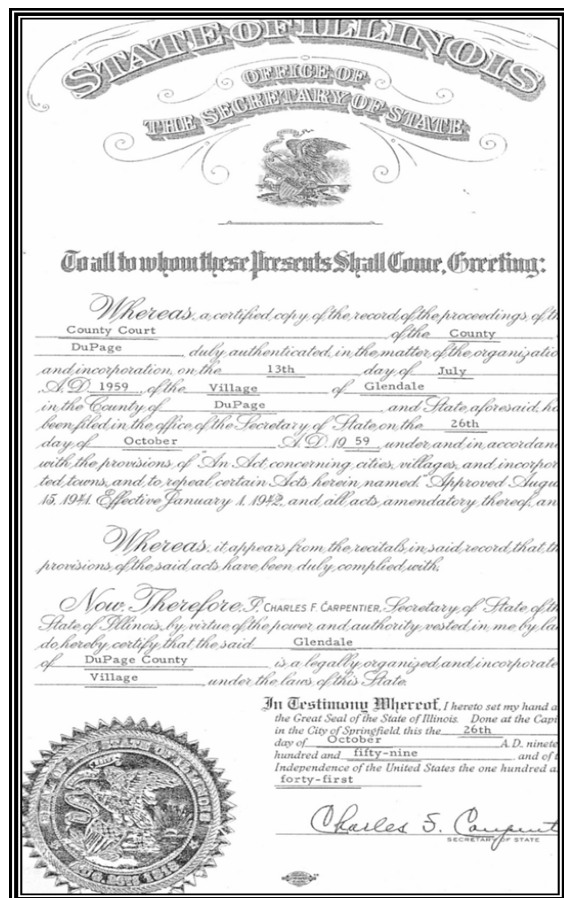 STATE OF ILLINOIS
OFFICE OF
THE SECRETARY OF STATE
To all to whom these Presents Shall Come, Greeting:
Whereas, a certified copy of the record of the proceedings of th
County Court of the County
DuPage duly authenticated, in the matter of the organizatio
and incorporation, on the 13th day of July
A.D. 1959, of the Village of Glendale
in the County of DuPage and State aforesaid, ha
been filed in the office of the Secretary of State, on the 26th
day of October A.D. 19 59 under and in accordanc
with the provisions of "An Act concerning cities, villages, and incorpor
ted towns, and to repeal certain Acts herein named." Approved Augu
15, 1941. Effective January 1, 1942, and all acts amendatory thereof, an
Whereas, it appears from the recitals in said record that th
provisions of the said acts have been duly complied with,
Now Therefore, I, CHARLES F. CARPENTIER, Secretary of State of th
State of Illinois, by virtue of the power and authority vested in me by la
do hereby certify that the said Glendale
of DuPage County is a legally organized and incorporate
Village under the laws of this State.
In Testimony Whereof, I hereto set my hand a
the Great Seal of the State of Illinois. Done at the Capi
in the City of Springfield, this the 26th
day of October A.D. ninete
hundred and fifty-nine and of t
Independence of the United States the one hundred a
forty-first
Charles F. Carpent
SECRETARY OF STATE